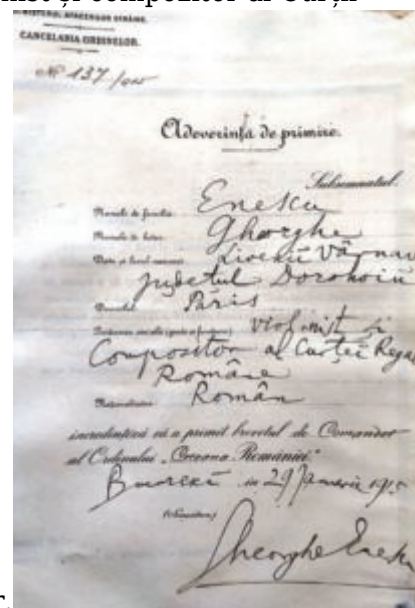 MINISTERUL AFACERILOR STRĂINE.
CANCELARIA ORDINELOR.
No 137/915
Adeverință de primire.
Subsemnatul.
Numele de familie Enescu
Numele de botez Gheorghe
Liveni Vârnav
județul Dorohoiu
Domiciliul Paris
violinist și
Compositor al Curței Regale
Române
Naționalitatea Român
încredințează că a primit brevetul de Comandor
al Ordinului „Coroana României”
București in 29 Ianuarie 1915
(Semnătura)
Gheorghe Enescu